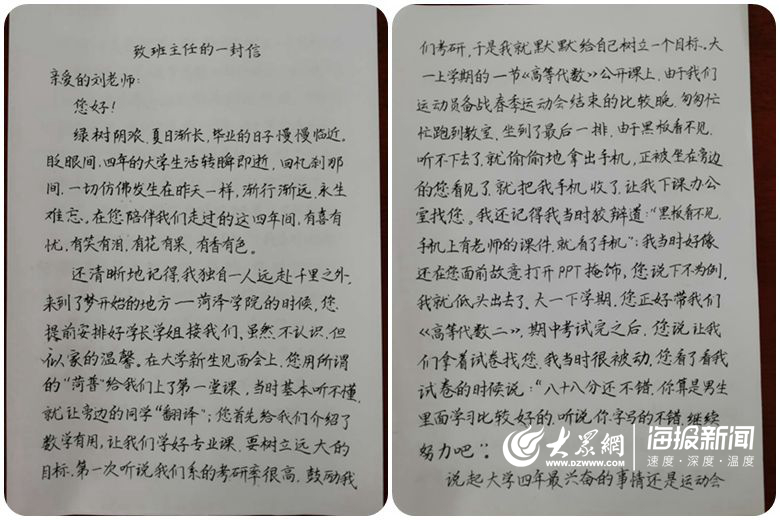 致班主任的一封信
亲爱的刘老师:
您好!
绿树阴浓,夏日渐长,毕业的日子慢慢临近。
眨眼间,四年的大学生活转瞬即逝,回忆刹那
间,一切仿佛发生在昨天一样,渐行渐远,永生
难忘。在您陪伴我们走过的这四年间,有喜有
忧,有笑有泪,有花有果,有香有色。
还清晰地记得,我独自一人远赴千里之外,
来到了梦开始的地方—菏泽学院的时候,您
提前安排好学长学姐接我们,虽然不认识,但
有以家的温馨。在大学新生见面会上,您用所谓
的“菏普”给我们上了第一堂课,当时基本听不懂,
就让旁边的同学“翻译”;您首先给我们介绍了
数学有用,让我们学好专业课,要树立远大的
目标,第一次听说我们系的考研率很高,鼓励我
们考研,于是我就默默给自己树立一个目标。大
一上学期的一节《高等代数》公开课上,由于我们
运动员备战春季运动会结束的比较晚,匆匆忙
忙跑到教室,坐到了最后一排,由于黑板看不见,
听不下去了,就偷偷地拿出手机,正被坐在旁边
的您看见了,就把我手机收了,让我下课办公
室找您。我还记得我当时狡辩道:“黑板看不见,
手机上有老师的课件,就看了手机”;我当时好像
还在您面前故意打开PPT掩饰,您说下不为例,
我就低头出去了。大一下学期,您正好带我们
《高等代数二》,期中考试完之后,您说让我
们拿着试卷找您,我当时很被动,您看了看我
试卷的时候说:“八十八分还不错,你算是男生
里面学习比较好的,听说你字写的不错,继续
努力吧”。
说起大学四年最兴奋的事情还是运动会
大众网
www.dzwww.com
海报新闻
速度·深度·温度